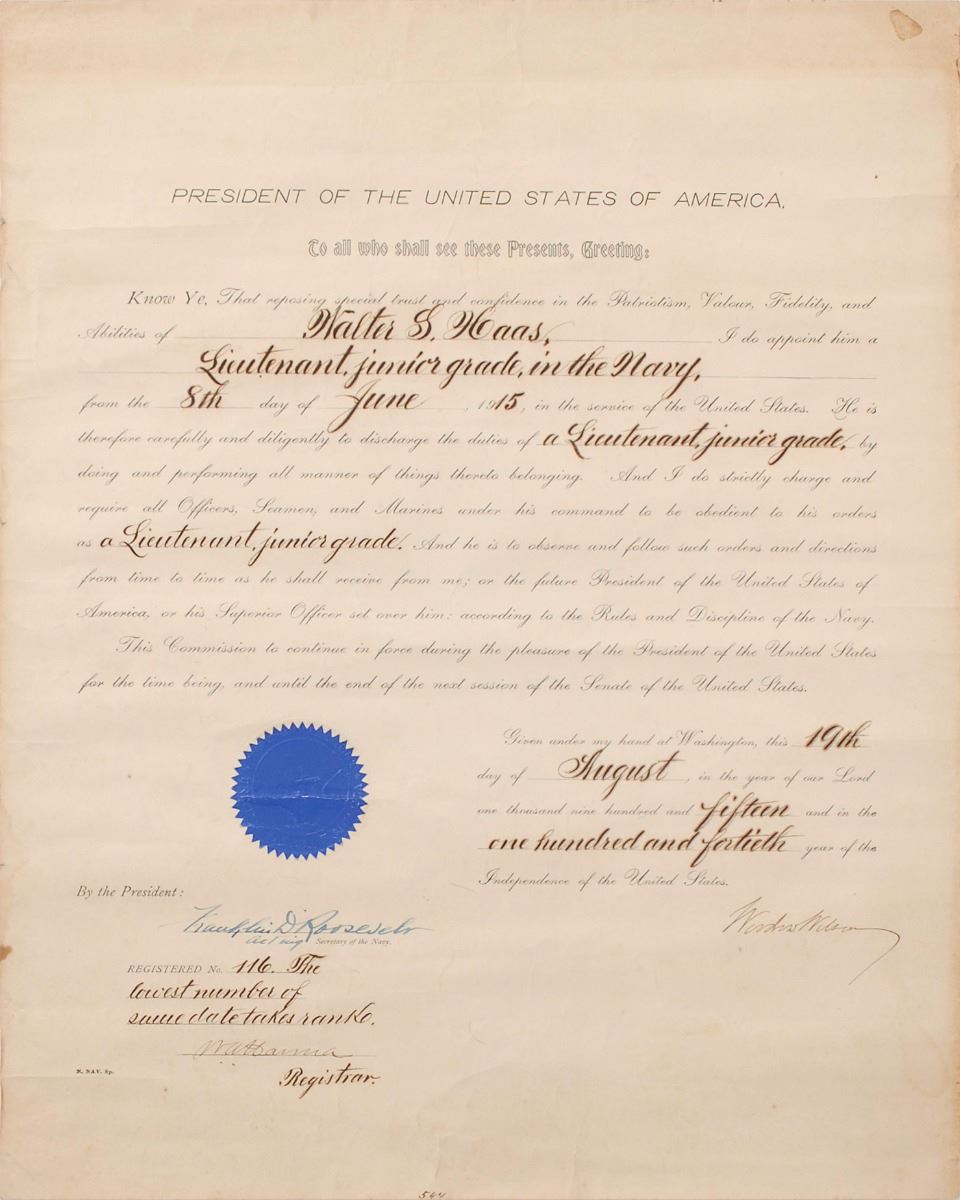 PRESIDENT OF THE UNITED STATES OF AMERICA,
To all who shall see these Presents, Greeting:
Know Ye, That reposing special trust and confidence in the Patriotism, Valour, Fidelity, and
Abilities of Walter S. Haas, I do appoint him a
Lieutenant, junior grade, in the Navy,
from the 8th day of June, 1915, in the service of the United States. He is
therefore carefully and diligently to discharge the duties of a Lieutenant, junior grade, by
doing and performing all manner of things thereto belonging. And I do strictly charge and
require all Officers, Seamen, and Marines under his command to be obedient to his orders
as a Lieutenant, junior grade. And he is to observe and follow such orders and directions
from time to time as he shall receive from me; or the future President of the United States of
America, or his Superior Officer set over him: according to the Rules and Discipline of the Navy.
This Commission to continue in force during the pleasure of the President of the United States
for the time being, and until the end of the next session of the Senate of the United States.
Given under my hand at Washington, this 19th
day of August, in the year of our Lord
one thousand nine hundred and fifteen and in the
one hundred and fortieth year of the
Independence of the United States.
Woodrow Wilson
By the President:
Franklin D Roosevelt
acting Secretary of the Navy.
REGISTERED No. 116. The
lowest number of
same date takes rank.
Registrar.
N. NAV. Sp.
544